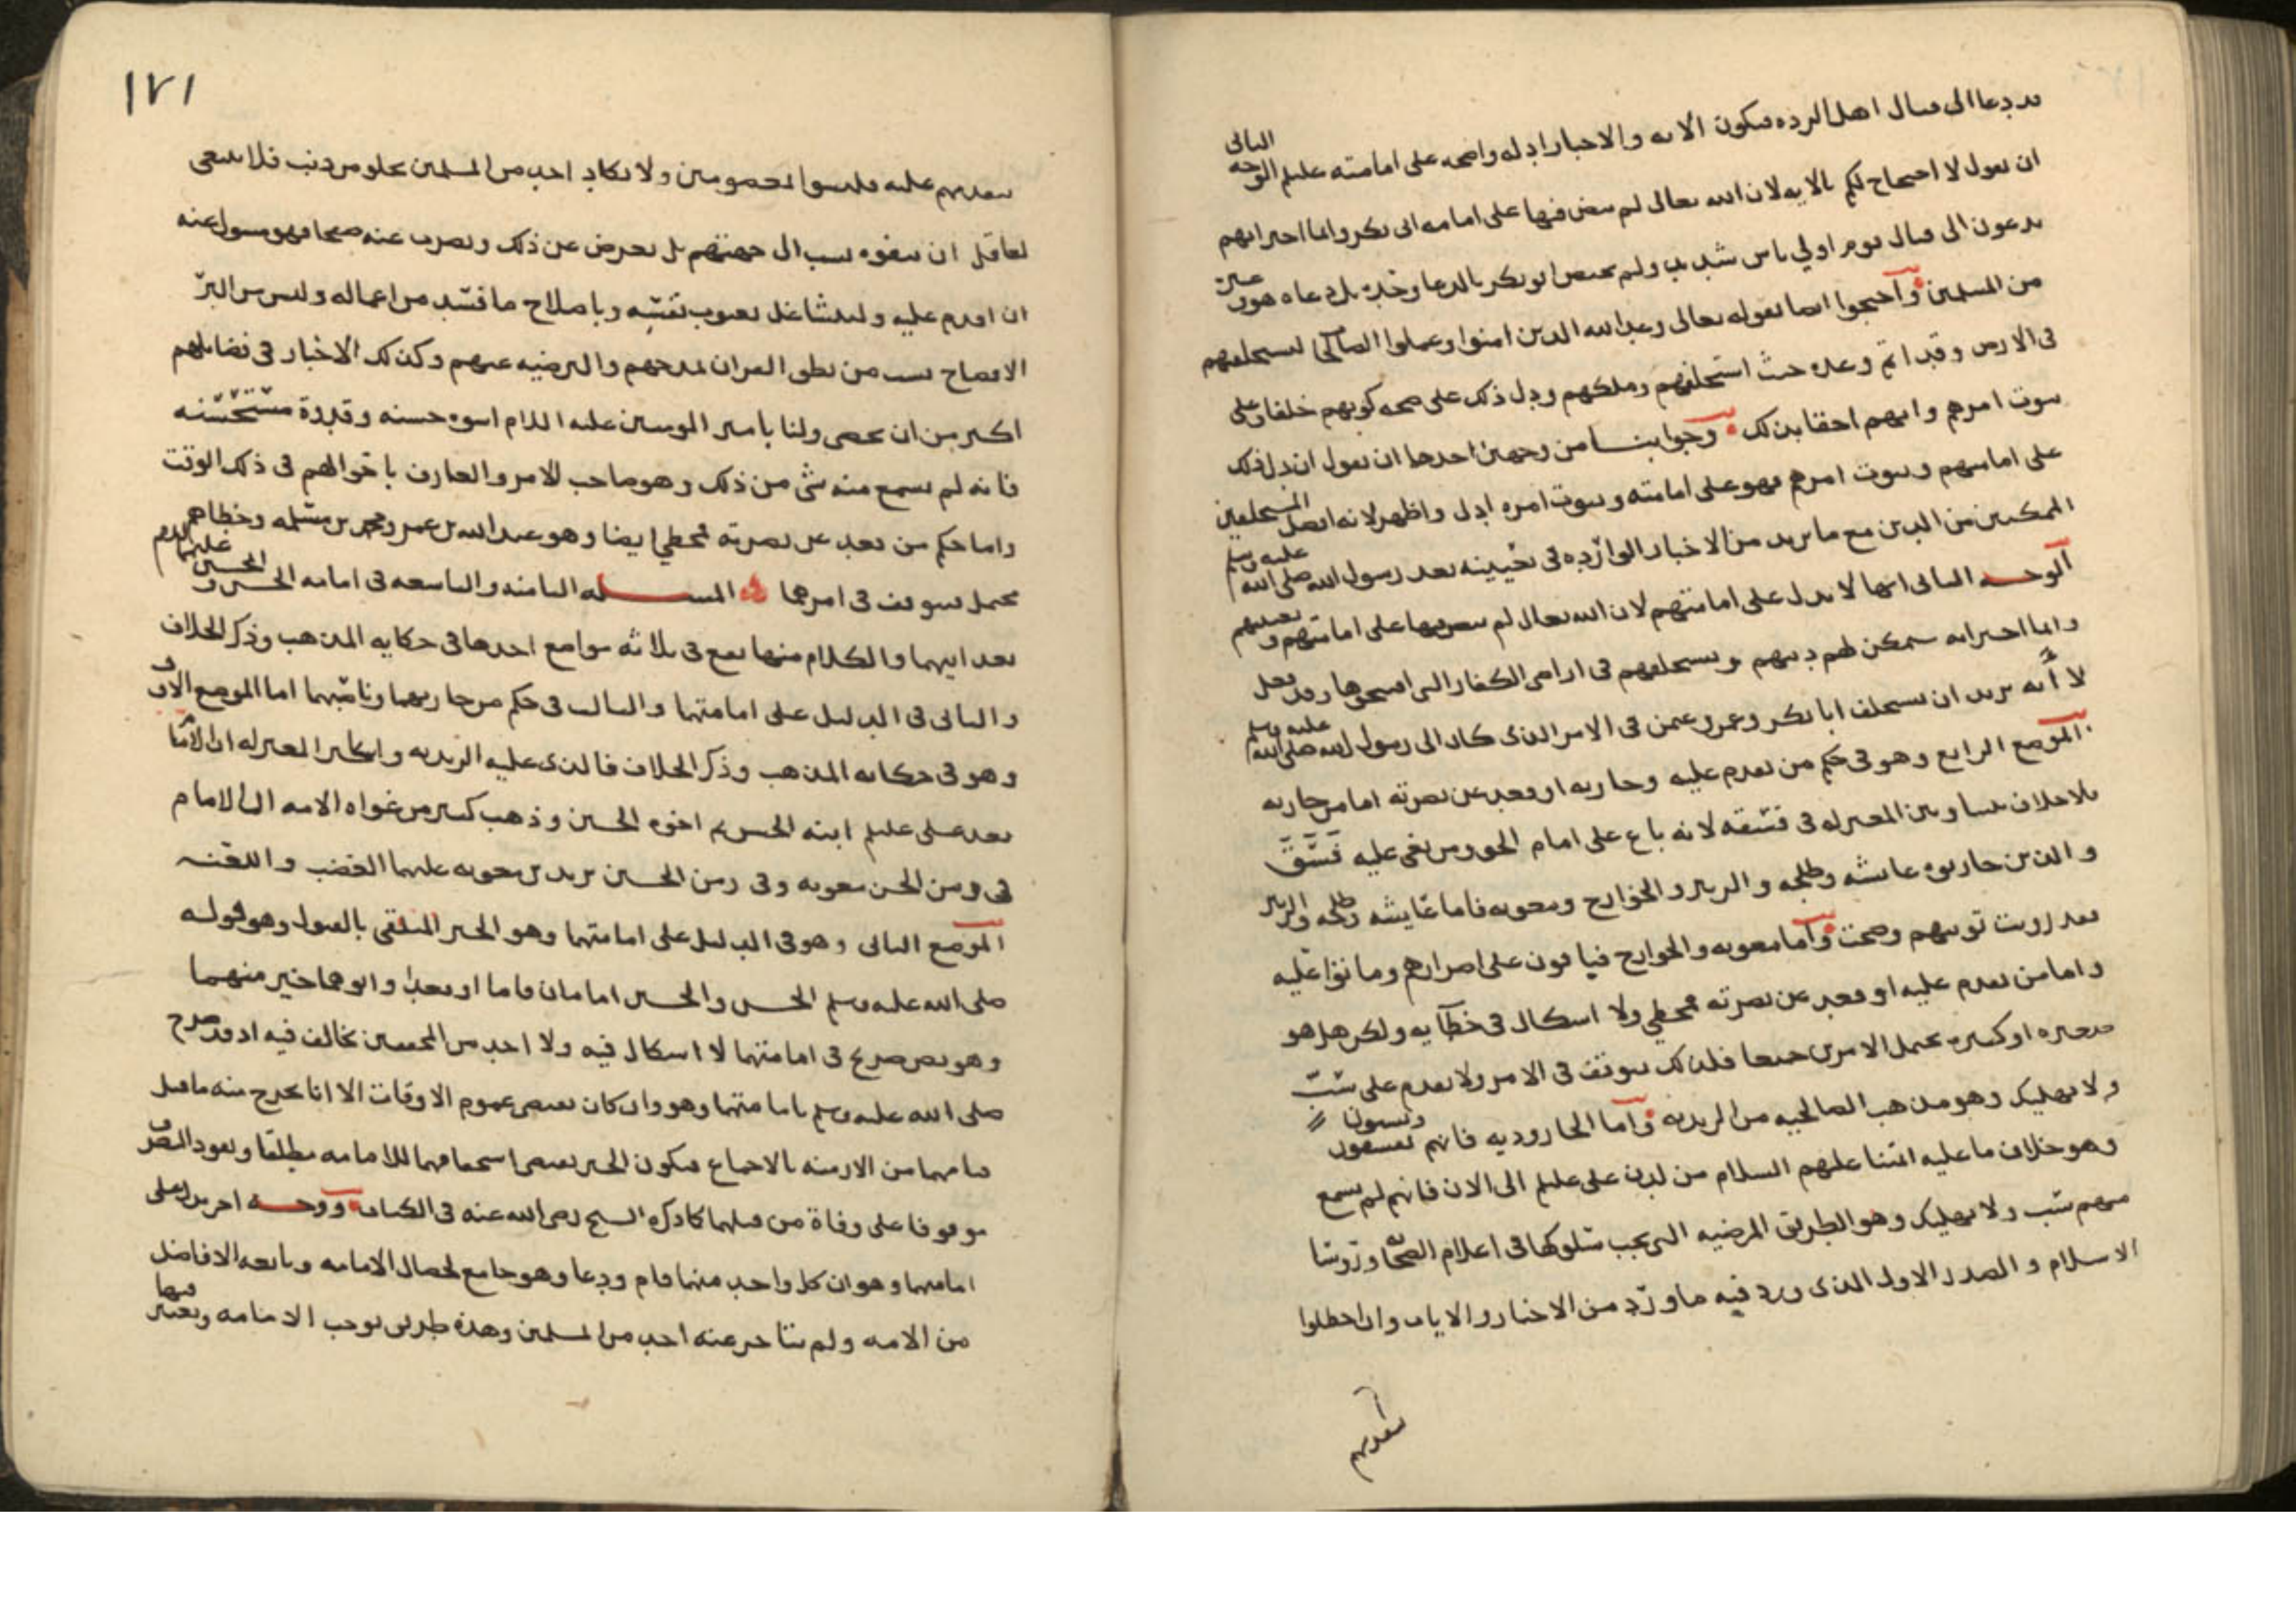 قد دعا الى قتال اهل الرده فيكون الايه والاخبار ادله واضحه على امامته عليلم الوجه الثاني
ان نقول لا احتجاج لكم بالايه لان الله تعالى لم ينص فيها على امامه ابي بكر وانما اخبر انهم
يدعون الى قتال قوم اولي باس شديد ولم يختص ابو بكر بالدعا وحده بل دعاه هو وغيره
من المسلمين واحتجوا ايضا بقوله تعالى وعد الله الذين امنوا وعملوا الصالحات ليستخلفنهم
في الارض وقد اتم وعده حيث استخلفهم وملكهم ودل ذلك على صحه كونهم خلفا وعلى
ثبوت امرهم وانهم احقا بذلك وجوابنا من وجهين احدهما ان نقول ان دل ذلك
على امامتهم وثبوت امرهم فهو على امامته وثبوت امره ادل واظهر لانه افضل المستخلفين
الممكنين من الدين مع ما يريد من الاخبار الوارده في تعيينه بعد رسول الله صلى الله عليه وسلم
الوجه الثاني انها لا تدل على امامتهم لان الله تعالى لم ينص فيها على امامتهم و
وانما اخبر انه سيمكن لهم دينهم ويستخلفهم في اراضي الكفار التي افتتحوها وقد فعل
لا أنه يريد ان يستخلف ابا بكر وعمر وعثمن في الامر الذي كان الى رسول الله صلى الله عليه وسلم
الموضع الرابع وهو في حكم من تقدم عليه وحاربه او قعد عن نصرته اما من حاربه
فلا خلاف بيننا وبين المعتزله في فسقه لانه باغ على امام الحق ومن بغى عليه فسق
والذين حاربوه عائشه وطلحه والزبير والخوارج ومعويه فاما عايشه وطلحه والزبير
فقد رويت توبتهم وصحت واما معويه والخوارج فباقون على اصرارهم وماتوا عليه
واما من تقدم عليه او قعد عن نصرته فمخطي ولا اشكال في خطايه ولكن هل هو
صغيره او كبيره يحتمل الامرين جميعا فلذلك نتوقف في الامر ولا نقدم على سب
ولا تهليك وهو مذهب الصالحيه من الزيديه واما الجاروديه فانهم يفسقون ويسبون
وهو خلاف ما عليه ائمتنا عليهم السلام من لدن علي عليلم الى الان فانهم لم يسمع
منهم سب ولا تهليك وهو الطريق المرضيه التي يجب سلوكها في اعلام الصحابه وروسا
الاسلام والصدر الاول الذي ورد فيه ما ورد من الاخبار والايات وان اخطاوا
بتقدمهم
١٧١
بتقدمهم عليه فليسوا المعصومين ولا يكاد احد من المسلمين يخلو من ذنب فلا ينبغي
لعاقل ان يتفوه بسب الى جهتهم بل يعرض عن ذلك ويصرف عنه صفحا فهو مسول عنه
ان اقدم عليه وليتشاغل بعيوب نفسه وباصلاح ما فسد من اعماله وليس من البر
الافصاح بسب من نطق القران بمدحهم والترضيه عنهم وكذلك الاخبار في فضايلهم
اكثر من ان تحصى ولنا بامير المومنين عليه السلام اسوه حسنه وقدوة مستحسنه
فانه لم يسمع منه شي من ذلك وهو صاحب الامر والعارف باحوالهم في ذلك الوقت
واما حكم من قعد عن نصرته فمخطي ايضا وهو عبد الله بن عمر ومحمد بن مسلمه وخطاهم
محتمل نتوقف في امرهما المسله الثامنه والتاسعه في امامه الحسن والحسين عليهما السلام
بعد ابيهما والكلام منها يقع في ثلاثه مواضع احدها في حكايه المذهب وذكر الخلاف
والثاني في الدليل على امامتهما والثالث في حكم من حاربهما وناصبهما اما الموضع الاول
وهو في حكايه المذهب وذكر الخلاف فالذي عليه الزيديه واكابر المعتزله ان الامام
بعد علي عليلم ابنه الحسن ثم اخوه الحسين وذهب كثير من غواه الامه الى ان الامام
في زمن الحسن معويه وفي زمن الحسين يزيد بن معويه عليهما الغضب واللعنه
الموضع الثاني وهو في الدليل على امامتهما وهو الخبر المتلقى بالقبول وهو قوله
صلى الله عليه وسلم الحسن والحسين امامان قاما او قعدا وابوهما خير منهما
وهو نص صريح في امامتهما لا اشكال فيه ولا احد من المحققين يخالف فيه اذ قد صرح
صلى الله عليه وسلم بامامتهما وهو وان كان يقتضي عموم الاوقات الا انا نخرج منه ما قبل
قيامهما من الازمنه بالاجماع فيكون الخبر يقتضي استحقاقهما للامامه مطلقا ويعود التصرف
موقوفا على وفاة من قبلهما كما ذكره الشيخ رضي الله عنه في الكتاب ووجه اخر يدل على
امامتهما وهو ان كل واحد منهما قام ودعا وهو جامع لخصال الامامه وبايعه الافاضل
من الامه ولم يتاخر عنه احد من المسلمين وهذه طريق توجب الامامه ويعتبر فيها